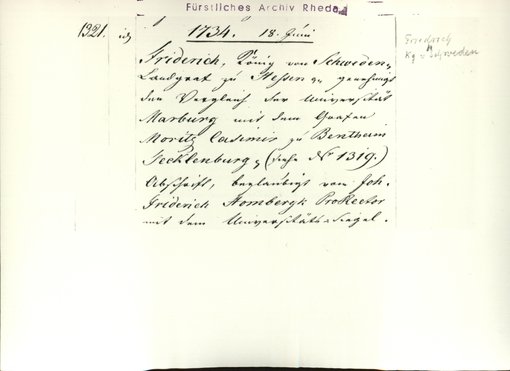 Fürstliches Archiv Rheda
1321.
1734. 18. Juni
Friedrich
Kg v Schweden
Friderich, König von Schweden,
Landgraf zu Hessen genehmigt
den Vergleich der Universität
Marburg mit dem Grafen
Moritz Casimir zu Bentheim
Tecklenburg, (siehe No 1319.)
Abschrift, beglaubigt von Joh.
Friderich Hombergk ProRector
mit dem Universitäts-Siegel.